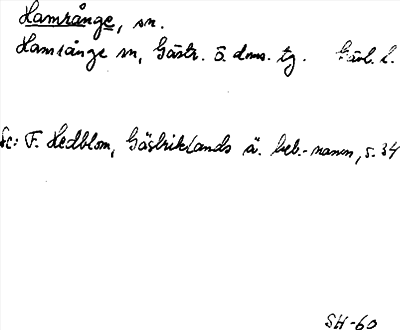 Hamrånge, sn.
Hamrånge sn, Gästr. ö. doms. tg. Gävl. l.
Sc: F. Hedblom, Gästriklands ä. beb.-namn, s. 34
SH-60